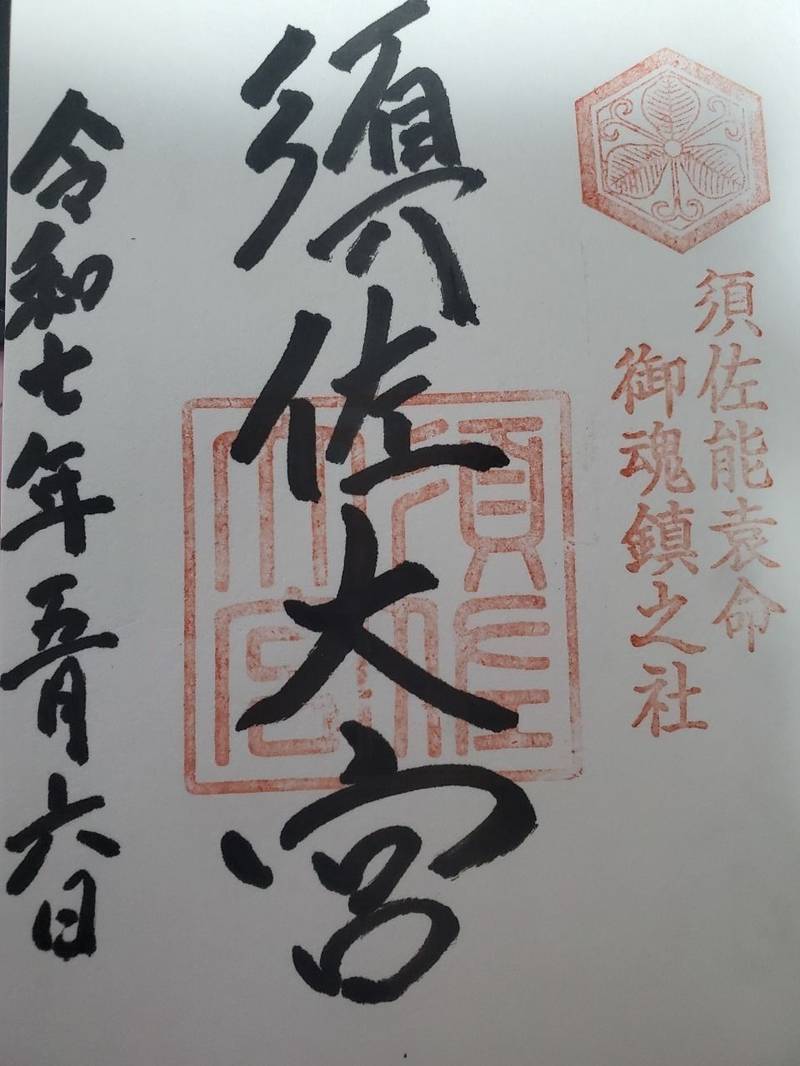 須佐能袁命
御魂鎮之社
須佐大宮
須佐大宮
令和七年五月六日